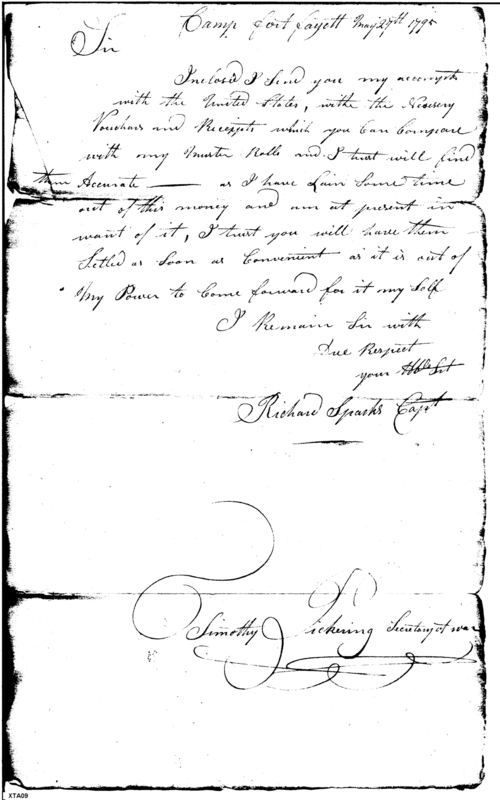 Camp fort fayett May 27th 1795
Sir
Inclosed I Send you my accompts
with the United States, withe the Nissery
Vouchars and Receipts which you Can Compare
with my Muster Rolls and I trust will find
them Accurate — as I have Lain Some time
out of this money and am at present in
want of it, I trust you will have them
Setled as Soon as Convenient as it is out of
My Power to Come forward for it my Self
I Remain Sir with
Due Respect
your Hble Svt
Richard Sparks Capt
Timothy Pickering Secretary of war
XTA09